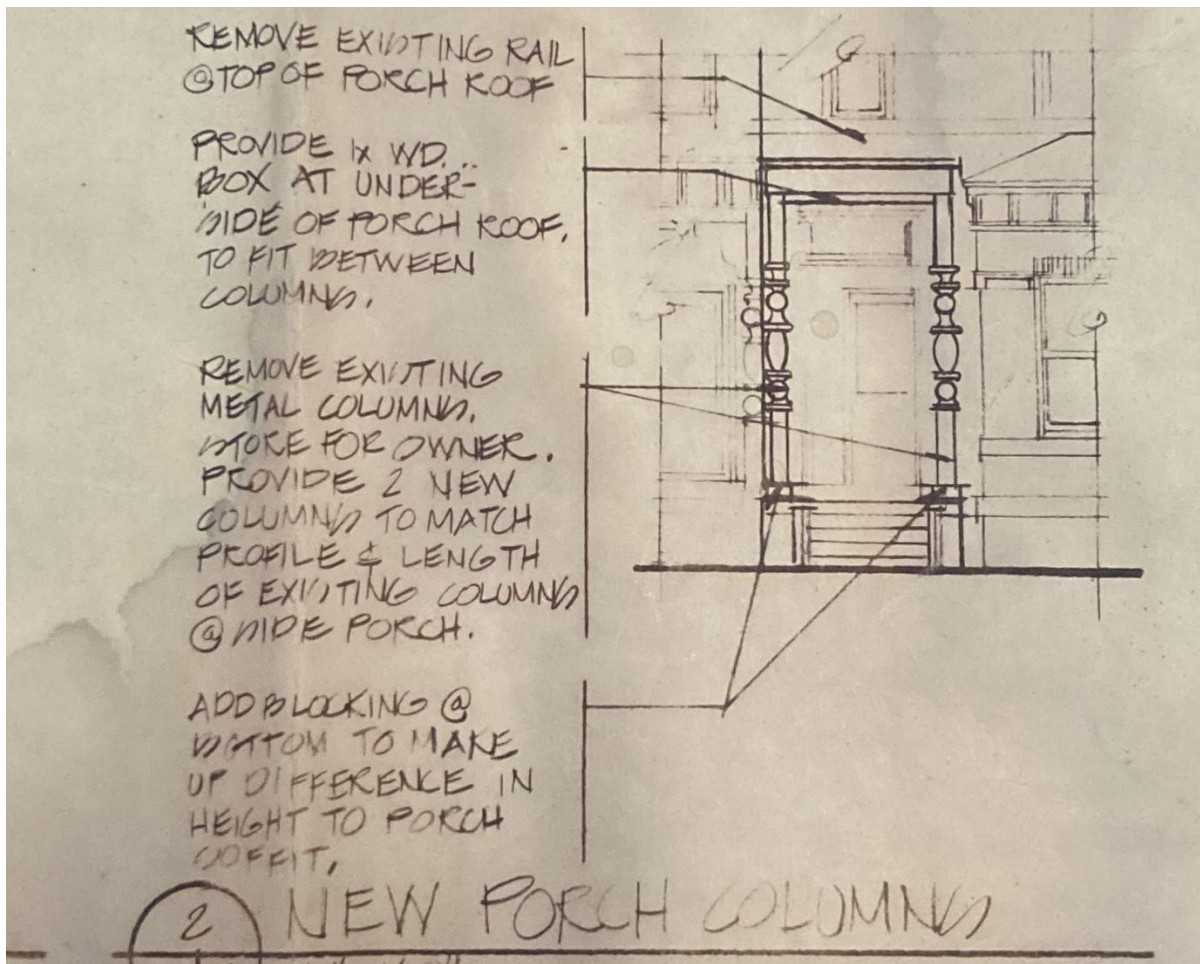 REMOVE EXISTING RAIL
@ TOP OF PORCH ROOF
PROVIDE 1x WD.
BOX AT UNDER-
SIDE OF PORCH ROOF,
TO FIT BETWEEN
COLUMNS.
REMOVE EXISTING
METAL COLUMNS.
STORE FOR OWNER.
PROVIDE 2 NEW
COLUMNS TO MATCH
PROFILE & LENGTH
OF EXISTING COLUMNS
@ SIDE PORCH.
ADD BLOCKING @
BOTTOM TO MAKE
UP DIFFERENCE IN
HEIGHT TO PORCH
SOFFIT.
2 NEW PORCH COLUMNS